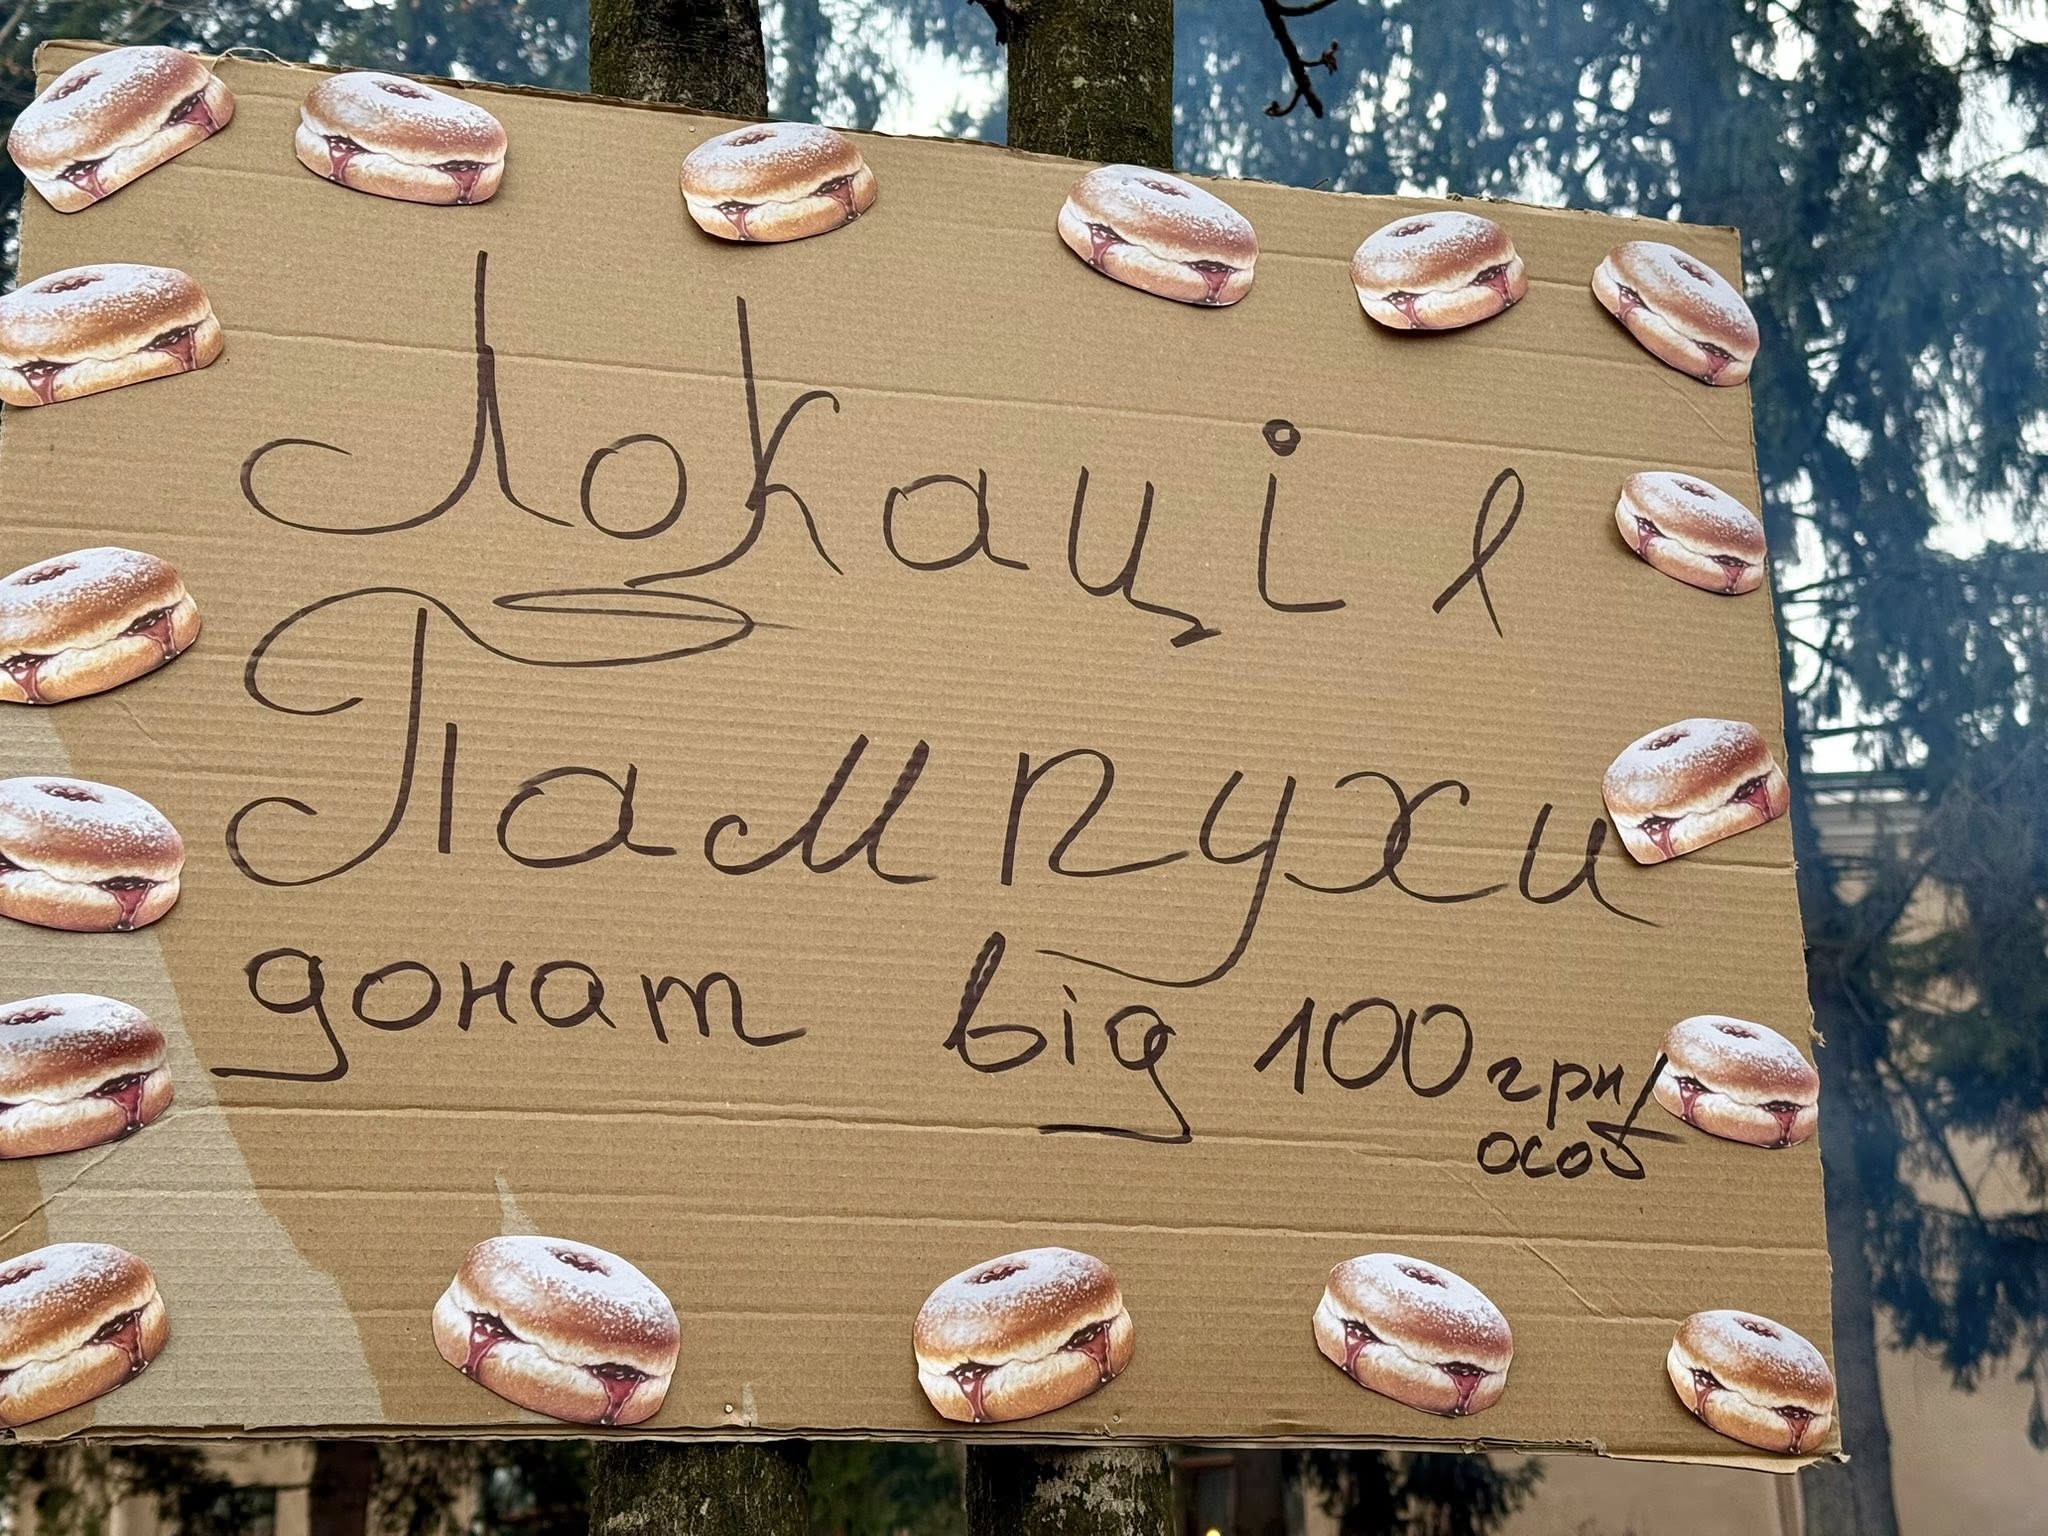 Локація
Пампухи
донат від 100 грн/
особ